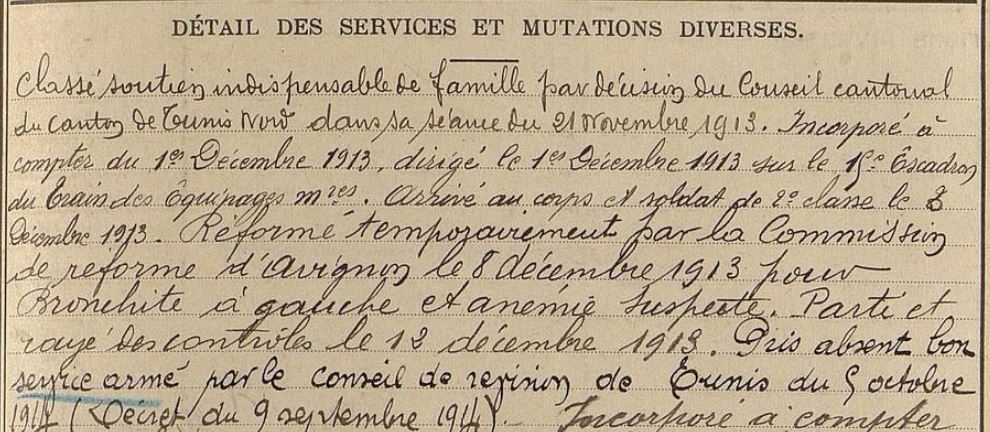 DÉTAIL DES SERVICES ET MUTATIONS DIVERSES.
Classé soutien indispensable de famille par décision du Conseil cantonal
du canton de Tunis Nord dans sa séance du 21 Novembre 1913. Incorporé à
compter du 1er Décembre 1913, dirigé le 1er Décembre 1913 sur le 15e Escadron
du Train des Équipages mres. Arrivé au corps et soldat de 2e classe le
Décembre 1913. Réformé temporairement par la Commission
de réforme d'Avignon le 8 décembre 1913 pour
Bronchite à gauche et anémie suspecte. Parti et
rayé des contrôles le 12 décembre 1913. Pris absent bon
service armé par le conseil de revision de Tunis du 5 octobre
1914 (Décret du 9 septembre 1914). Incorporé à compter